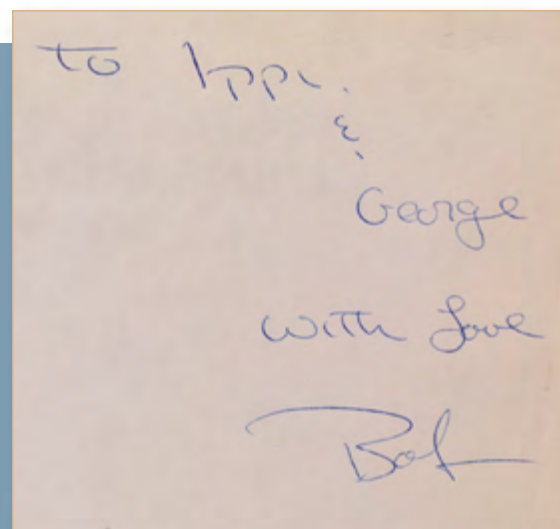 To Ippi
&
George
with Love
Bob